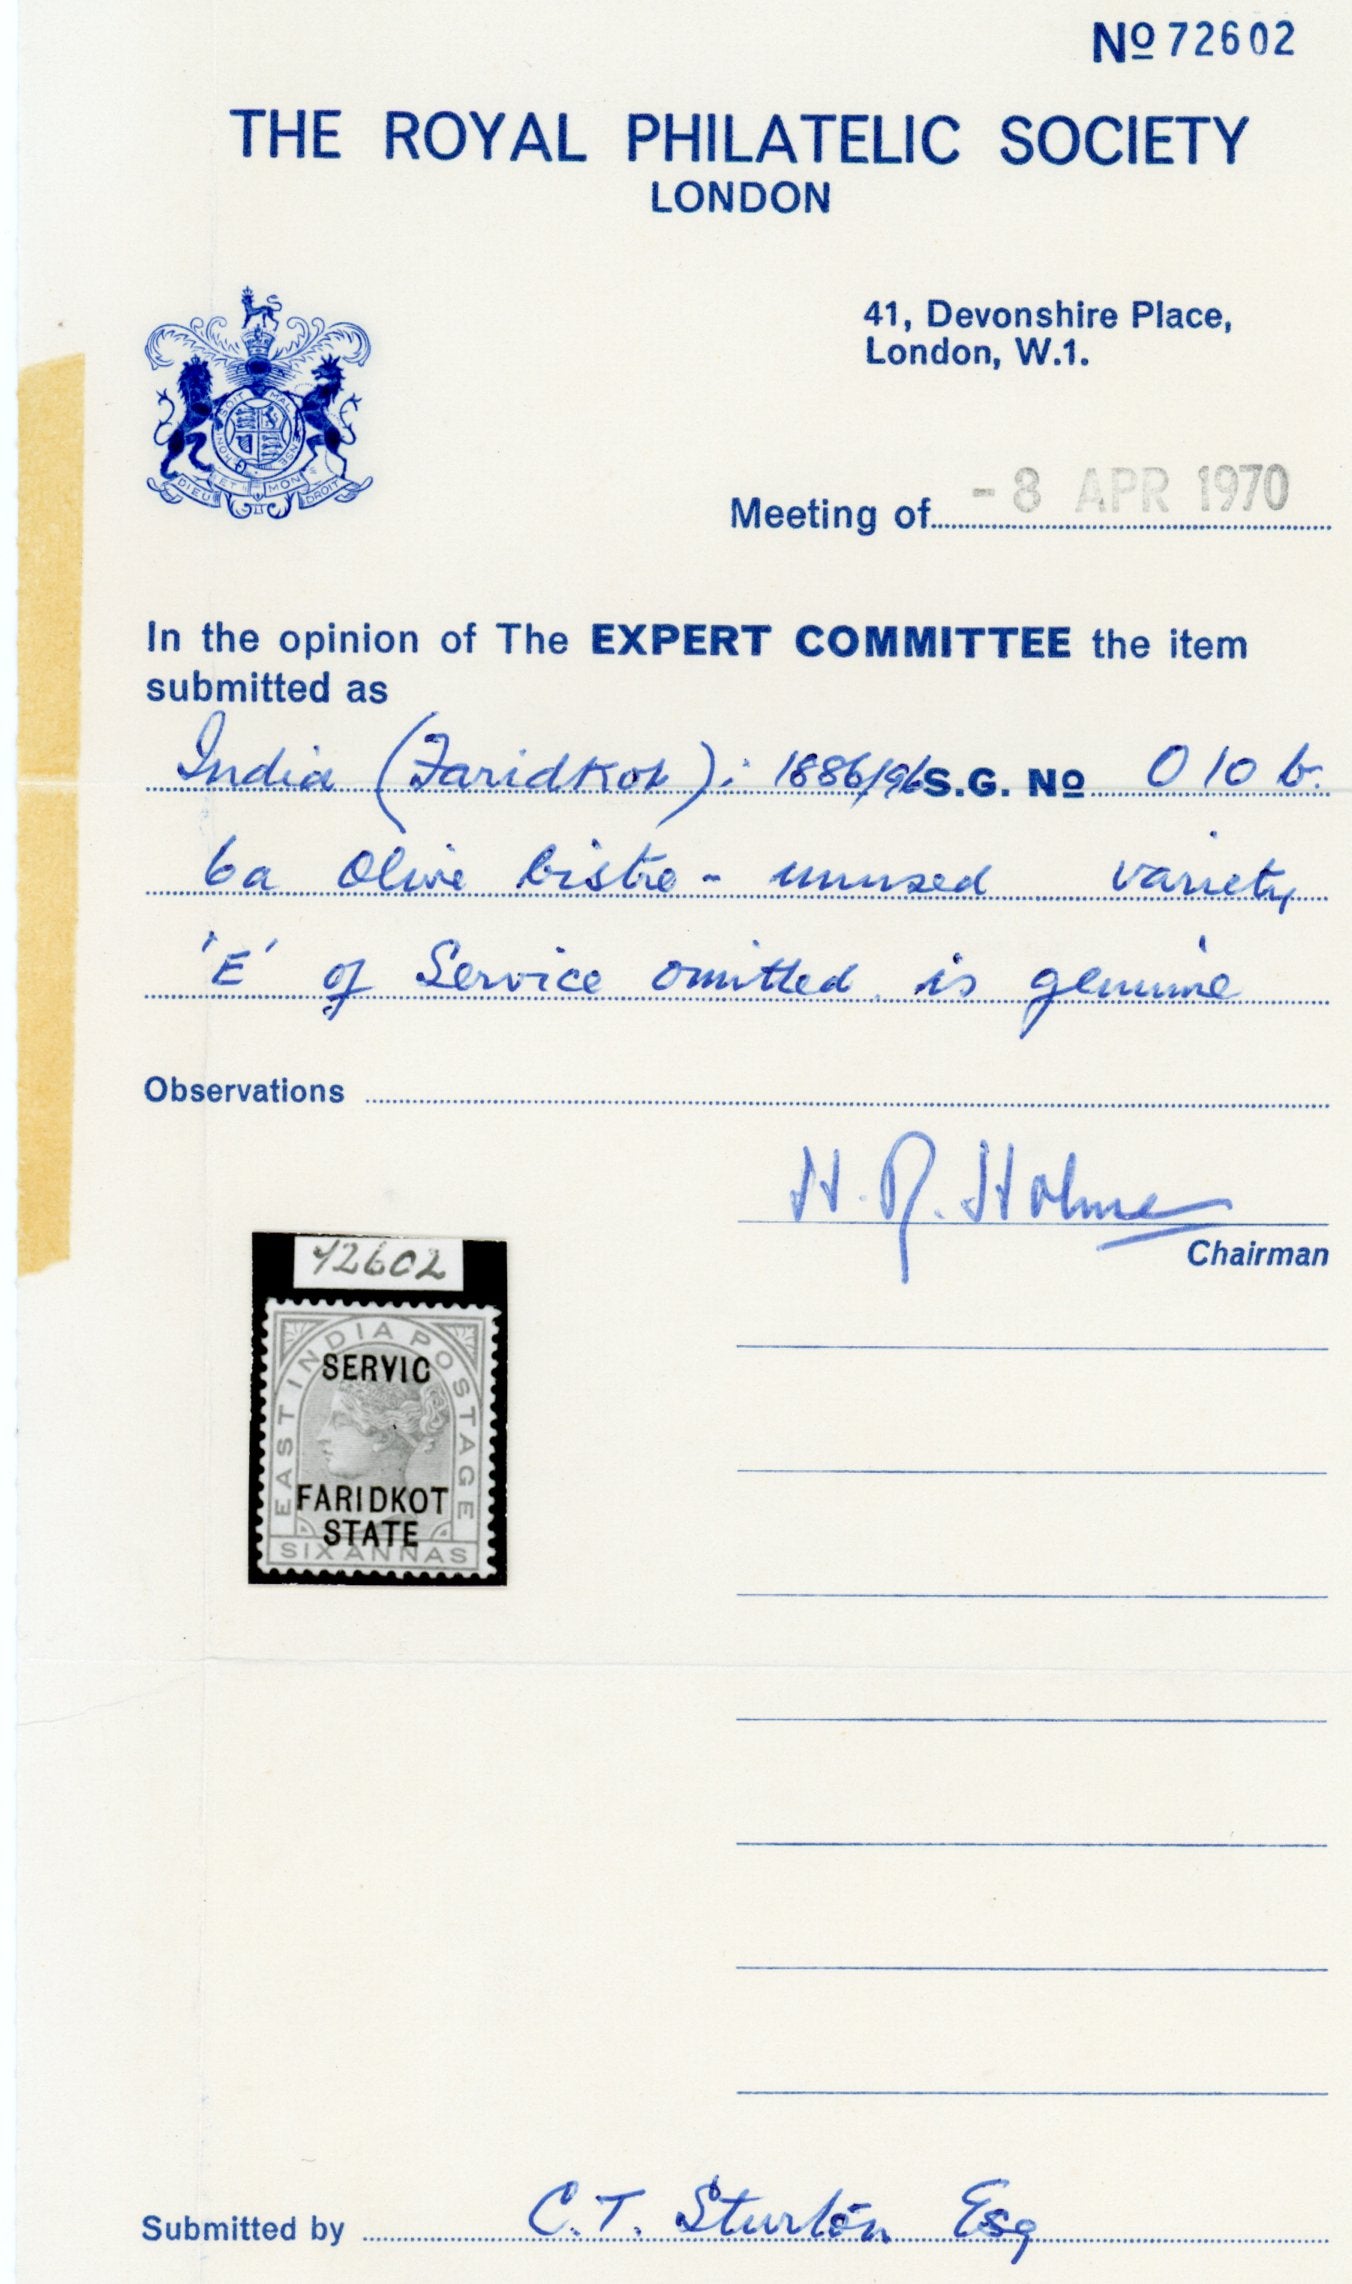 Nº 72602
THE ROYAL PHILATELIC SOCIETY
LONDON
41, Devonshire Place,
London, W.1.
HONI SOIT MAL PENSE
DIEU ET MON DROIT
Meeting of - 8 APR 1970
In the opinion of The EXPERT COMMITTEE the item
submitted as
India (Faridkot); 1886/96 S.G. Nº O 10 b.
6a Olive bistre - unused variety
'E' of Service omitted is genuine
Observations
H. R. Holmes
Chairman
72602
EAST INDIA POSTAGE
SERVIC
FARIDKOT
STATE
SIX ANNAS
Submitted by C. T. Sturton Esq